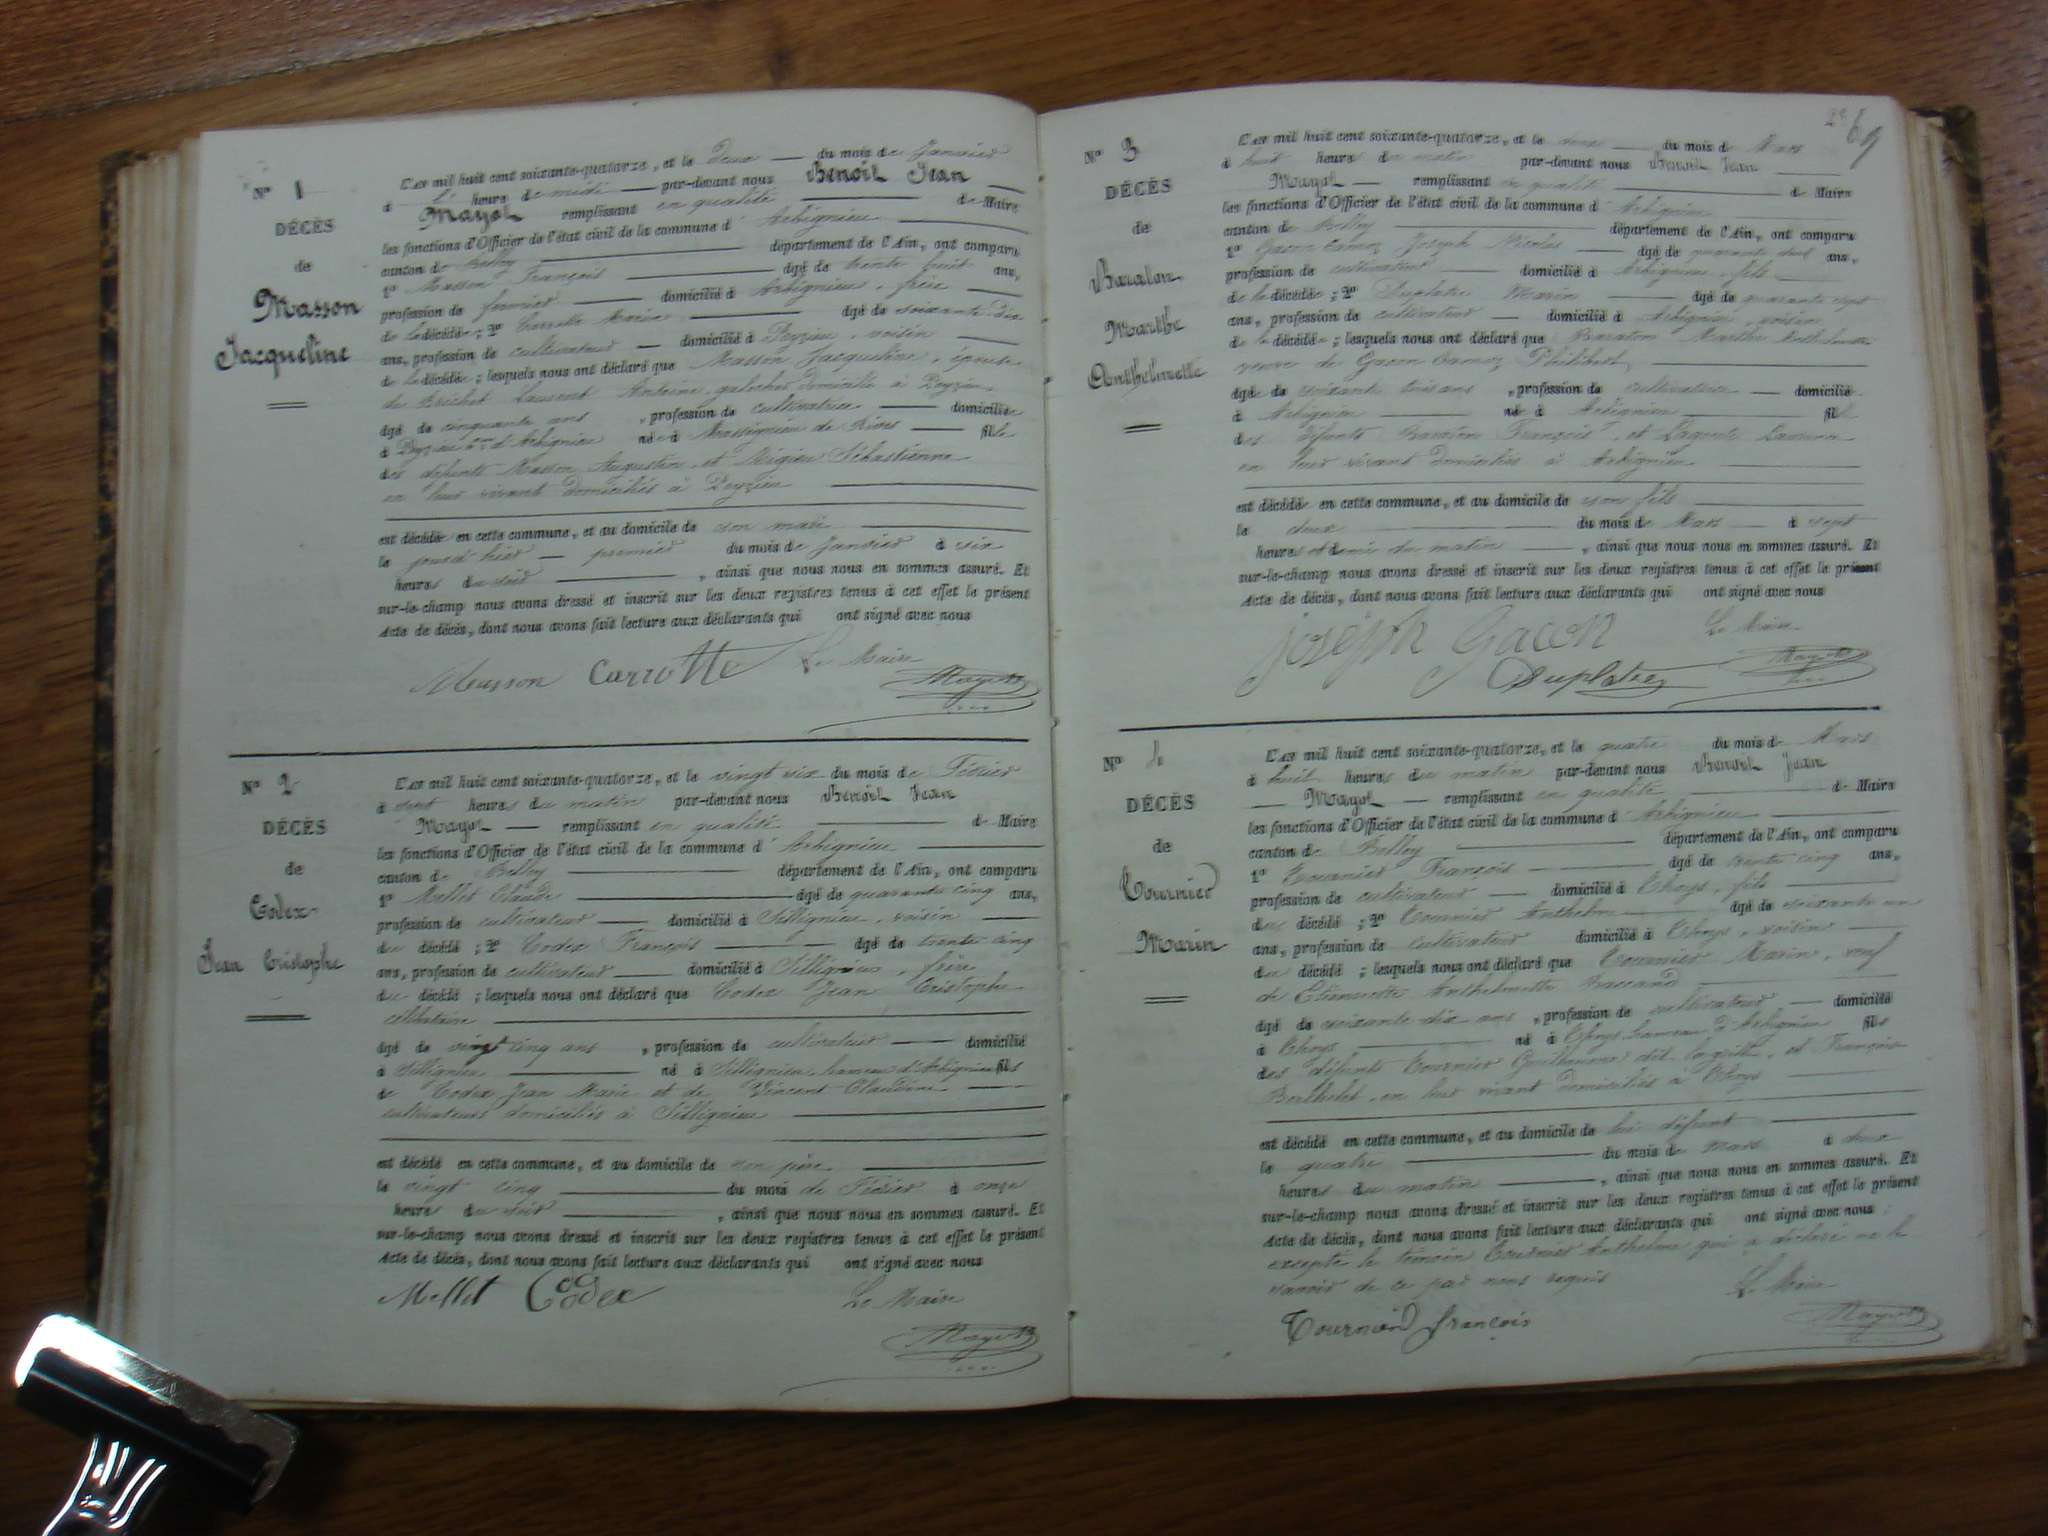 Nº 1
DÉCÈS
de
Masson
Jacqueline
L'an mil huit cent soixante-quatorze, et le deux du mois de Janvier
à heure de midi par-devant nous Benoit Jean
Mayot remplissant en qualité de Maire
les fonctions d'Officier de l'état civil de la commune d'Arbignieu
canton de Belley département de l'Ain, ont comparu
1º Masson François âgé de trente huit ans,
profession de fermier domicilié à Arbignieu, frère
de la décédée ; 2º Carrotte Marin âgé de soixante dix
ans, profession de cultivateur domicilié à Peyzieu, voisin
de la décédée ; lesquels nous ont déclaré que Masson Jacqueline, épouse
de Brichet Laurent Antoine domicilié à Peyzieu
âgé de cinquante ans, profession de cultivatrice domiciliée
à Peyzieu d'Arbignieu née à Massignieu de Rives fille
des défunts Masson Augustin et Sébastienne
en leur vivant domiciliés à Peyzieu
est décédée en cette commune, et au domicile de son mari
le jour d'hier premier du mois de Janvier à six
heures du soir, ainsi que nous nous en sommes assuré. Et
sur-le-champ nous avons dressé et inscrit sur les deux registres tenus à cet effet le présent
Acte de décès, dont nous avons fait lecture aux déclarants qui ont signé avec nous
Masson Carrotte Le Maire
Mayot
Nº 2
DÉCÈS
de
Codex
Jean Cristophe
L'an mil huit cent soixante-quatorze, et le vingt six du mois de Février
à heures du matin par-devant nous Benoit Jean
Mayot remplissant en qualité de Maire
les fonctions d'Officier de l'état civil de la commune d'Arbignieu
canton de Belley département de l'Ain, ont comparu
1º Mellet Claude âgé de quarante cinq ans,
profession de cultivateur domicilié à Sillignieu, voisin
du décédé ; 2º Codex François âgé de trente cinq
ans, profession de cultivateur domicilié à Sillignieu, frère
du décédé ; lesquels nous ont déclaré que Codex Jean Cristophe
célibataire
âgé de vingt cinq ans, profession de cultivateur domicilié
à Sillignieu né à Sillignieu, hameau d'Arbignieu fils
de Codex Jean Marie et de Vincent Claudine
cultivateurs domiciliés à Sillignieu
est décédé en cette commune, et au domicile de son père
le vingt cinq du mois de Février à onze
heures du soir, ainsi que nous nous en sommes assuré. Et
sur-le-champ nous avons dressé et inscrit sur les deux registres tenus à cet effet le présent
Acte de décès, dont nous avons fait lecture aux déclarants qui ont signé avec nous
Mellet Codex Le Maire
Mayot
69
Nº 3
DÉCÈS
de
Baraton
Marthe
Anthelmette
L'an mil huit cent soixante-quatorze, et le deux du mois de Mars
à huit heures du matin par-devant nous Benoit Jean
Mayot remplissant en qualité de Maire
les fonctions d'Officier de l'état civil de la commune d'Arbignieu
canton de Belley département de l'Ain, ont comparu
1º Gacon Joseph Nicolas âgé de quarante ans,
profession de cultivateur domicilié à Arbignieu, fils
de la décédée ; 2º Duplatre Marin âgé de quarante sept
ans, profession de cultivateur domicilié à Arbignieu, voisin
de la décédée ; lesquels nous ont déclaré que Baraton Marthe Anthelmette
veuve de Gacon Philibert
âgé de soixante trois ans, profession de cultivatrice domiciliée
à Arbignieu née à Arbignieu fille
des défunts Baraton François, et
en leur vivant domiciliés à Arbignieu
est décédée en cette commune, et au domicile de son fils
le deux du mois de Mars à sept
heures et demie du matin, ainsi que nous nous en sommes assuré. Et
sur-le-champ nous avons dressé et inscrit sur les deux registres tenus à cet effet le présent
Acte de décès, dont nous avons fait lecture aux déclarants qui ont signé avec nous
Joseph Gacon Le Maire
Duplatre Mayot
Nº 4
DÉCÈS
de
Tournier
Marin
L'an mil huit cent soixante-quatorze, et le quatre du mois de Mars
à huit heures du matin par-devant nous Benoit Jean
Mayot remplissant en qualité de Maire
les fonctions d'Officier de l'état civil de la commune d'Arbignieu
canton de Belley département de l'Ain, ont comparu
1º Tournier François âgé de trente cinq ans,
profession de cultivateur domicilié à Thoys, fils
du décédé ; 2º Tournier Anthelme âgé de soixante un
ans, profession de cultivateur domicilié à Thoys, voisin
du décédé ; lesquels nous ont déclaré que Tournier Marin, veuf
de Etiennette Anthelmette
âgé de soixante dix ans, profession de cultivateur domicilié
à Thoys né à Thoys hameau d'Arbignieu fils
des défunts Tournier Guillaume dit, et Françoise
Berthelet, en leur vivant domiciliés à Thoys
est décédé en cette commune, et au domicile de lui défunt
le quatre du mois de Mars à deux
heures du matin, ainsi que nous nous en sommes assuré. Et
sur-le-champ nous avons dressé et inscrit sur les deux registres tenus à cet effet le présent
Acte de décès, dont nous avons fait lecture aux déclarants qui ont signé avec nous
excepté le témoin Tournier Anthelme qui a déclaré ne le
savoir de ce par nous requis
Le Maire
Tournier François Mayot